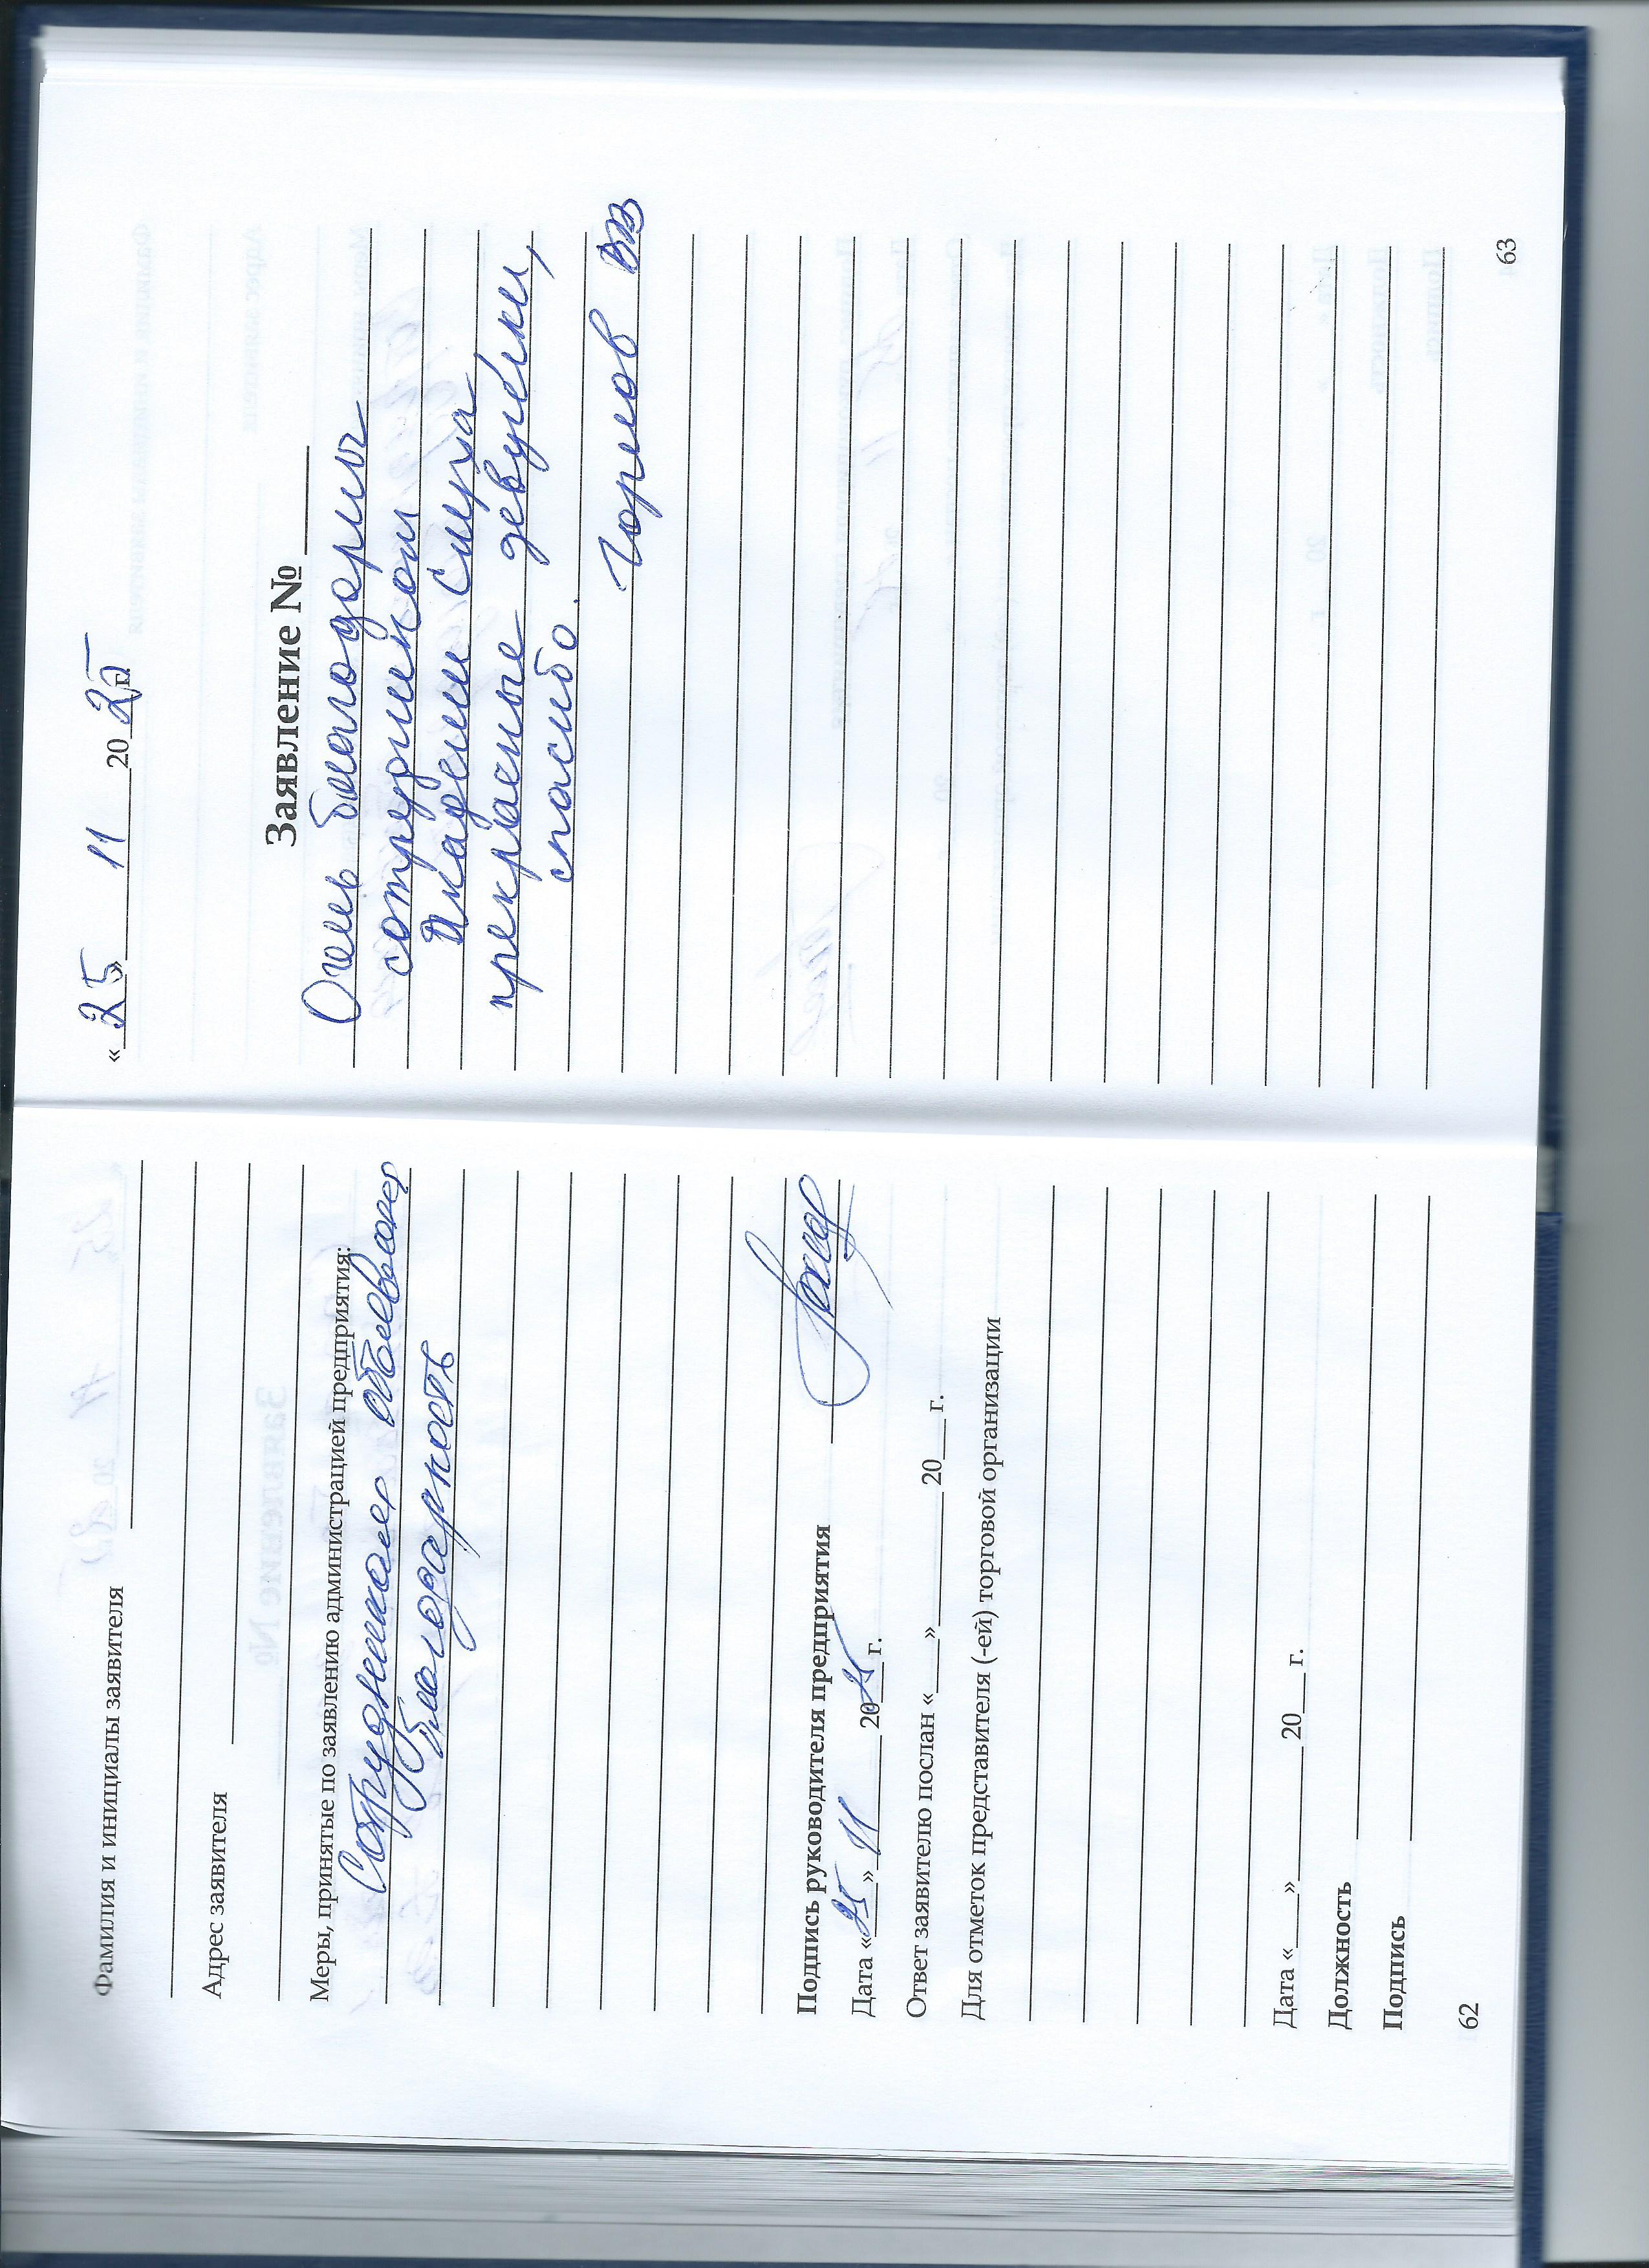 Фамилия и инициалы заявителя
Адрес заявителя
Меры, принятые по заявлению администрацией предприятия:
Сотрудникам объявлена
благодарность
Подпись руководителя предприятия
Дата «25» 11 2025 г.
Ответ заявителю послан «___»________20___г.
Для отметок представителя (-ей) торговой организации
Дата «___»________20___г.
Должность
Подпись
62
«25» 11 2025
Заявление №
Очень благодарны
сотрудникам
прекрасные девушки,
спасибо.
ВВ
63